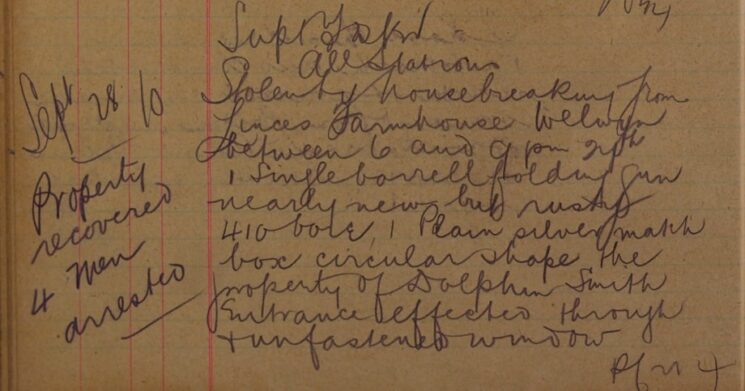 Supt
All Stations
Sept 28 / 10
Stolen by housebreaking from
Linces Farmhouse Welwyn
between 6 and 9 pm 27th
1 Single barrell folding gun
nearly new but rusty
410 bore, 1 Plain silver match
box circular shape the
property of Dolphin Smith
Entrance effected through
unfastened window
Property
recovered
4 men
arrested